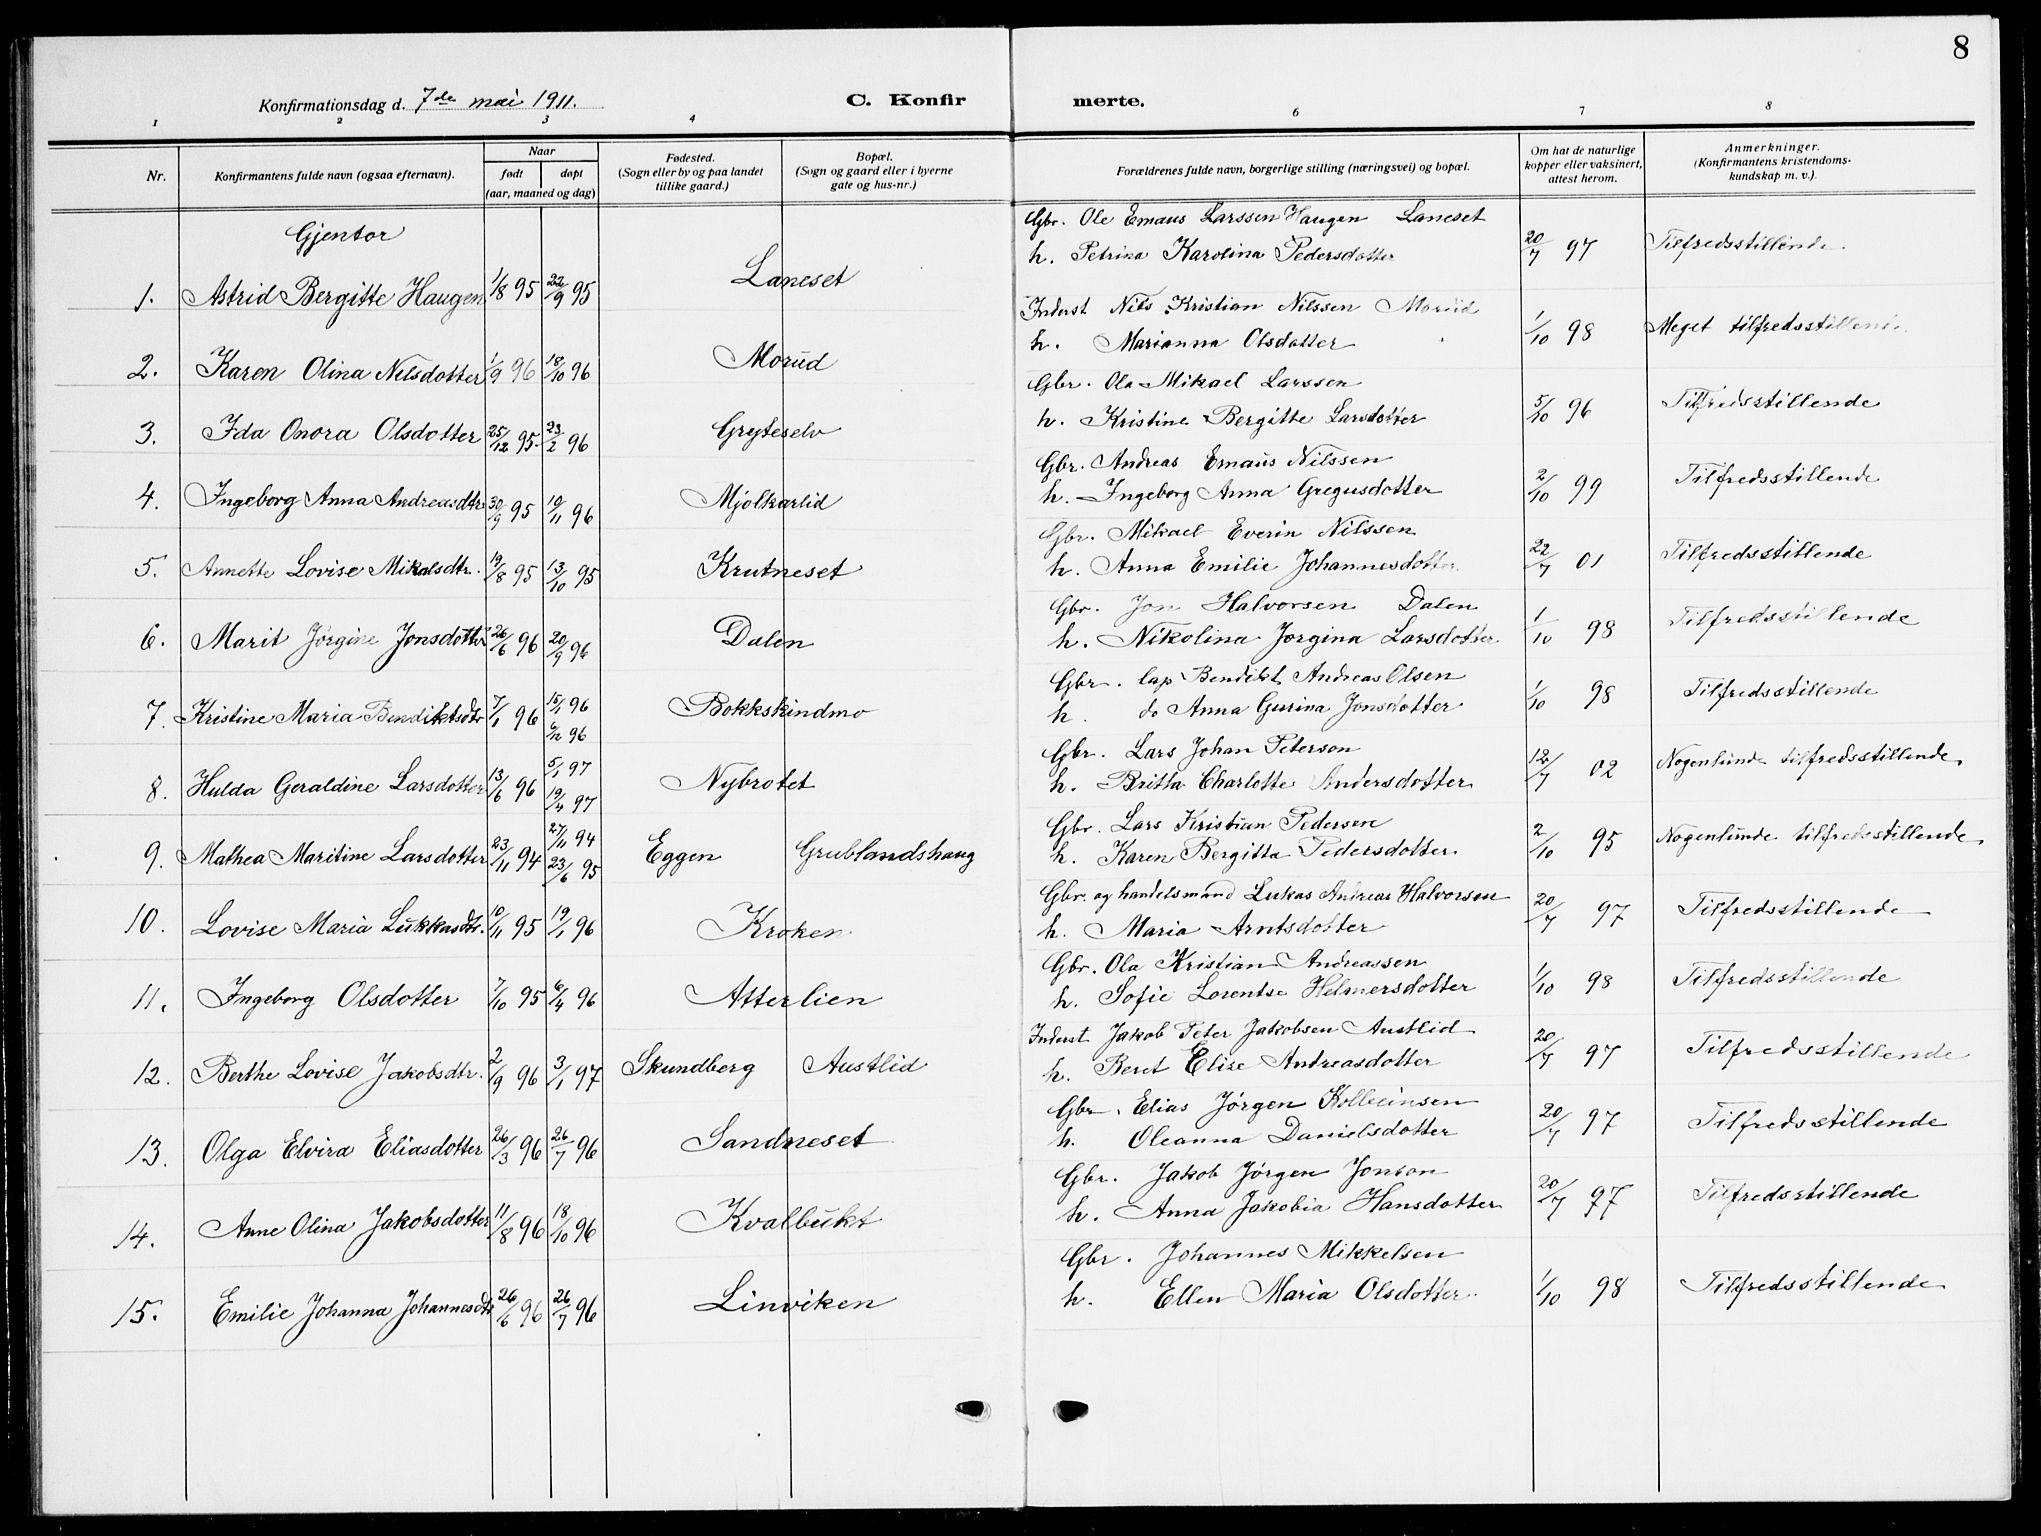 8
Konfirmationsdag d. 7de mai 1911.
C. Konfir
merte.
1 2 3 4 6 7 8
Nr.
Konfirmantens fulde navn (ogsaa efternavn).
Naar
født døpt
(aar, maaned og dag)
Fødested.
(Sogn eller by og paa landet
tillike gaard.)
Bopæl.
(Sogn og gaard eller i byerne
gate og hus-nr.)
Forældrenes fulde navn, borgerlige stilling (næringsvei) og bopæl.
Om hat de naturlige
kopper eller vaksinert,
attest herom.
Anmerkninger.
(Konfirmantens kristendoms-
kundskap m. v.).
Gjentor
Gbr. Ole Emaus Larssen Haugen Laneset
1. Astrid Bergitte Haugen 1/8 95 22/9 95 Laneset h. Petrina Karolina Pedersdotter 20/7 97 Tilfredsstillende.
Inderst Nils Kristian Nilssen Morud
2. Karen Olina Nilsdotter 1/9 96 18/10 96 Morud h. Marianna Olsdotter 1/10 98 Meget tilfredsstillende.
Gbr. Ola Mikael Larssen
3. Ida Onora Olsdotter 25/12 95. 23/2 96 Gryteselv h. Kristine Bergitte Larsdotter 5/10 96 Tilfredsstillende
Gbr. Andreas Emaus Nilssen
4. Ingeborg Anna Andreasdtr 30/9 95 10/11 96 Mjolkarlid h. Ingeborg Anna Gregusdotter 2/10 99 Tilfredsstillende
Gbr. Mikael Everin Nilssen
5. Annette Lovise Mikalsdtr. 19/8 95 13/10 95 Krutneset h. Anna Emilie Johannesdotter 22/7 01 Tilfredsstillende
Gbr. Jon Halvorsen Dalen
6. Marit Jørgine Jonsdotter 26/6 96 20/9 96 Dalen h. Nikolina Jørgina Larsdotter 1/10 98 Tilfredsstillende
Gbr. lap Bendikt Andreas Olsen
7. Kristine Maria Bendiktsdtr 7/1 96 15/1 96 6/12 96 Bokkskindmo h. do Anna Gurina Jonsdotter 1/10 98 Tilfredsstillende
Gbr. Lars Johan Peterson
8. Hulda Geraldine Larsdotter 13/6 96 5/1 97 19/4 97 Nybrotet h. Britta Charlotte Andersdotter 12/7 02 Nogenlunde tilfredsstillende.
Gbr. Lars Kristian Pedersen
9. Mathea Maritine Larsdotter 23/11 94 27/11 94 23/6 95 Eggen Grublandshaug h. Karen Bergitta Pedersdotter 2/10 95 Nogenlunde tilfredsstillende.
Gbr. og handelsmand Lukas Andreas Halvorsen
10. Lovise Maria Lukkasdtr. 10/11 95 19/1 96 Kroken h. Maria Arntsdotter 20/7 97 Tilfredsstillende
Gbr. Ola Kristian Andreassen
11. Ingeborg Olsdotter 7/10 95 6/4 96 Atterlien h. Sofie Lorentse Helmersdotter 1/10 98 Tilfredsstillende
Inderst Jakob Peter Jakobsen Austlid
12. Berthe Lovise Jakobsdtr. 2/9 96 3/1 97 Skundberg Austlid h. Beret Elise Andreasdotter 20/7 97 Tilfredsstillende
Gbr. Elias Jørgen Kolbeinsen
13. Olga Elvira Eliasdotter 26/3 96 26/7 96 Sandneset h. Oleanna Danielsdotter 20/7 97 Tilfredsstillende
Gbr. Jakob Jørgen Jonson
14. Anne Olina Jakobsdotter 11/8 96 18/10 96 Kvalbukt h. Anna Jakobia Hansdotter 20/7 97 Tilfredsstillende
Gbr. Johannes Mikkelsen
15. Emilie Johanna Johannesdtr 26/6 96 26/7 96 Linviken h. Ellen Maria Olsdotter. 1/10 98 Tilfredsstillende